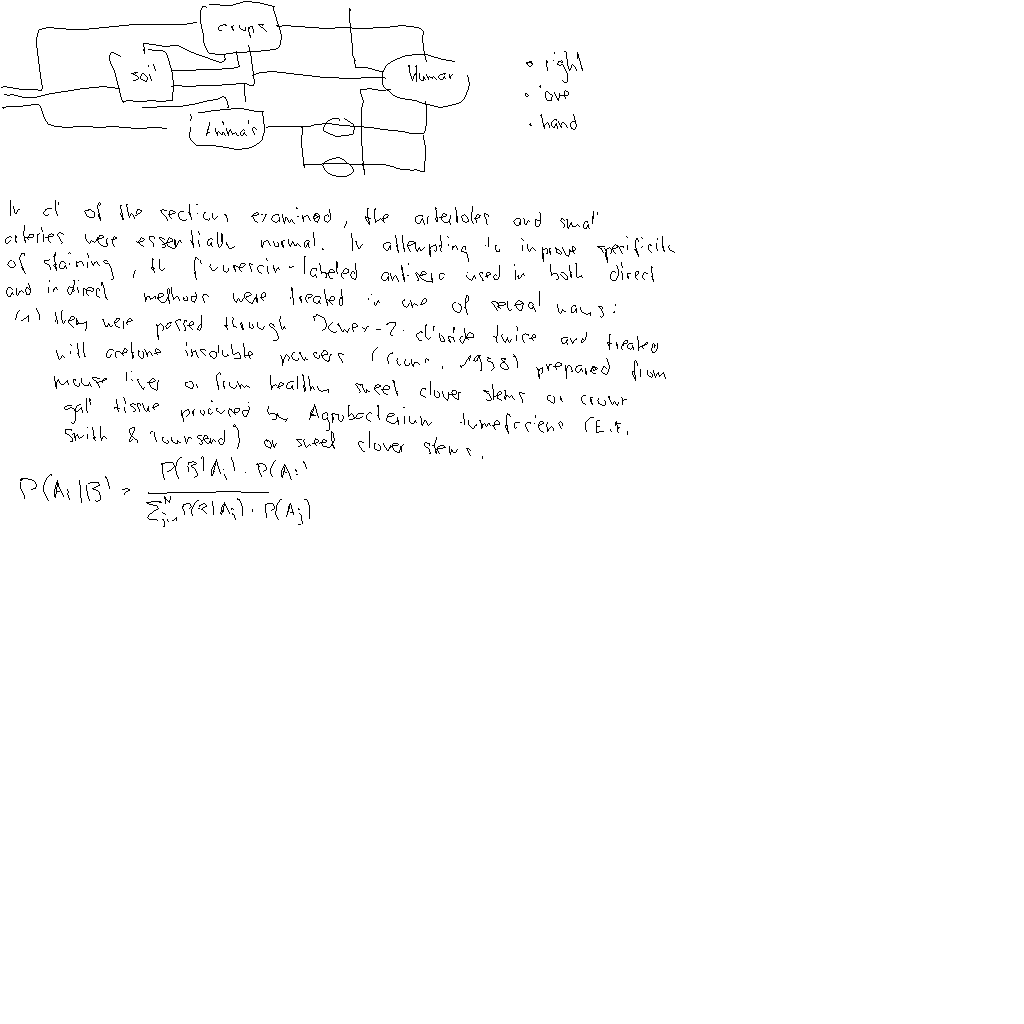 crops
soil
Human
Animals
• right
• love
• hand
In all of the sections examined, the arterioles and small
arteries were essentially normal. In attempting to improve specificity
of staining, the fluorescein-labeled antisera used in both direct
and indirect methods were treated in one of several ways:
(1) They were passed through Dowex-2-chloride twice and treated
with acetone insoluble powders (Coons, 1958) prepared from
mouse liver or from healthy sweet clover stems or crown
gall tissue produced by Agrobacterium tumefaciens (E.F.
Smith & Townsend) on sweet clover stems.
P(Ai|B) = P(B|Ai) · P(Ai) / ∑_{j=1}^{N} P(B|Aj) · P(Aj)